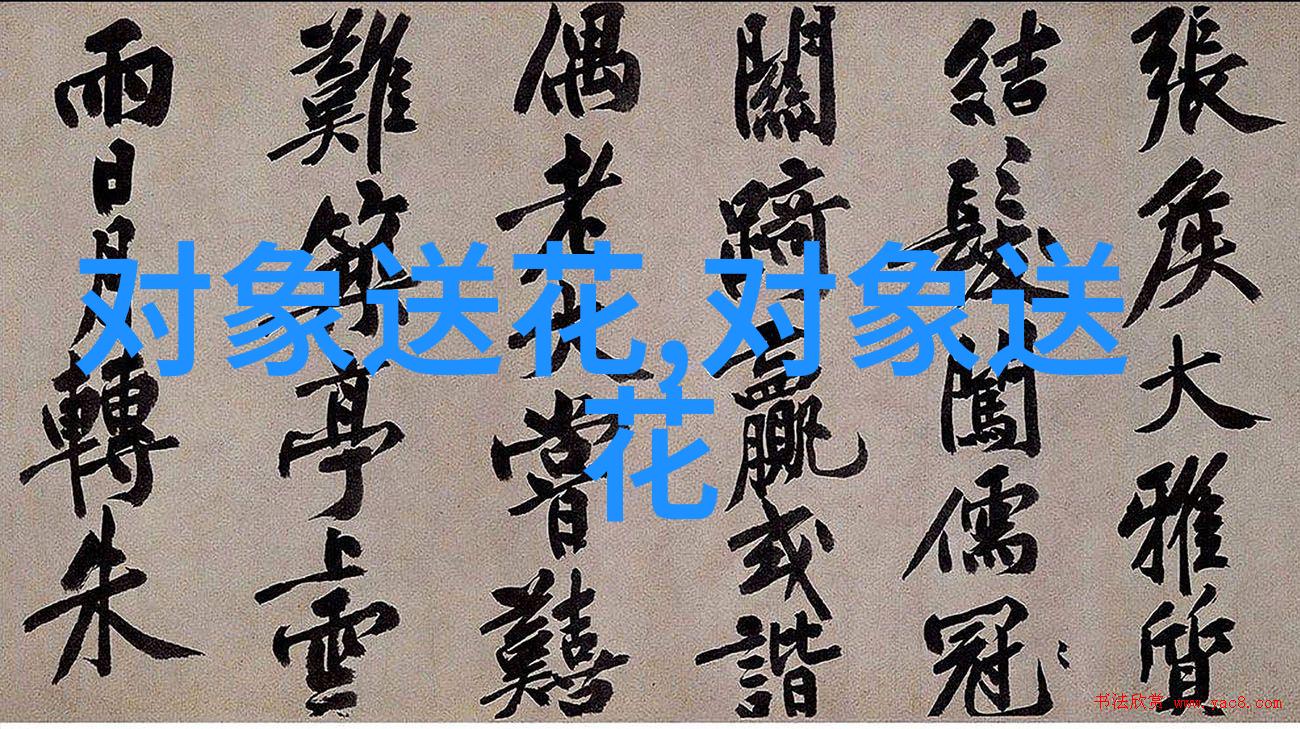 張侯大雅質
結髮闖儒冠
關踦贏或諧
偶老大嘗囏
難築亭上雲
雨日月轉朱
对象送花,对象送
花
书法欣赏 www.yac8.com